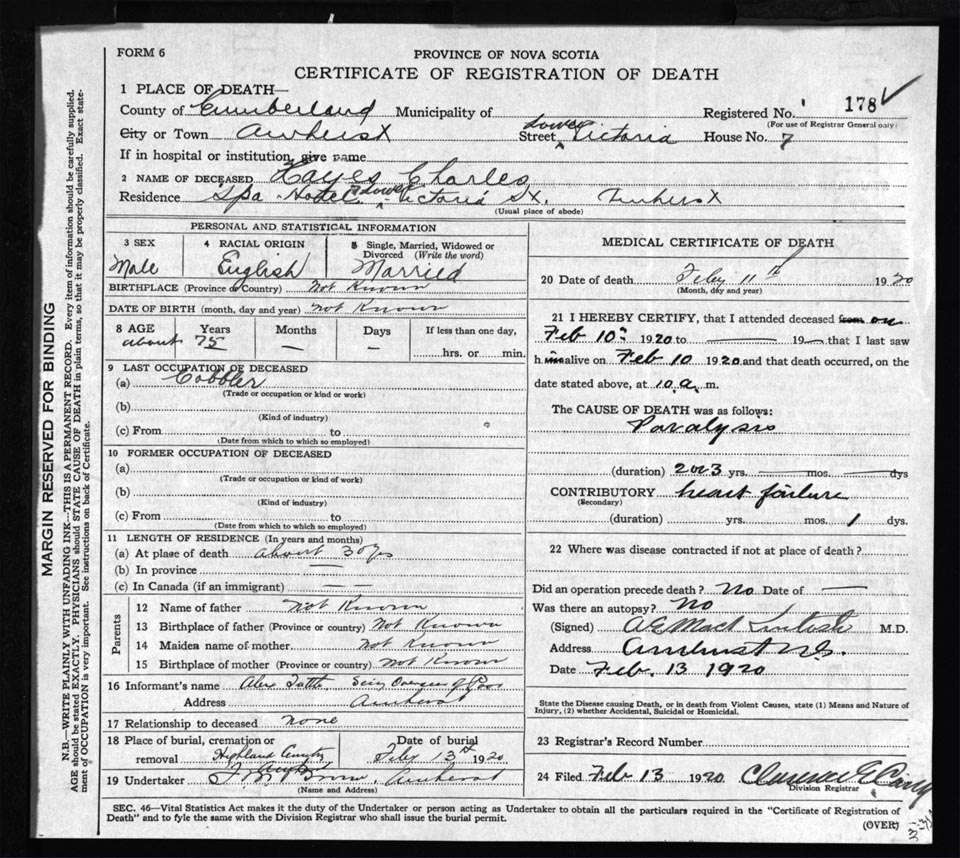 FORM 6
PROVINCE OF NOVA SCOTIA
CERTIFICATE OF REGISTRATION OF DEATH
MARGIN RESERVED FOR BINDING
N.B.—WRITE PLAINLY WITH UNFADING INK—THIS IS A PERMANENT RECORD. Every item of information should be carefully supplied.
AGE should be stated EXACTLY. PHYSICIANS should STATE CAUSE OF DEATH in plain terms, so that it may be properly classified. Exact state-
ment of OCCUPATION is very important. See instructions on back of Certificate.
1 PLACE OF DEATH—
County of Cumberland Municipality of Registered No. 178
(For use of Registrar General only)
City or Town Amherst Street Lower Victoria House No. 7
If in hospital or institution, give name
2 NAME OF DECEASED Hayes Charles
Residence Spa Hotel Lower Victoria St. Amherst
(Usual place of abode)
PERSONAL AND STATISTICAL INFORMATION
3 SEX 4 RACIAL ORIGIN 5 Single, Married, Widowed or
Divorced (Write the word)
Male English Married
BIRTHPLACE (Province or Country) Not Known
DATE OF BIRTH (month, day and year) Not Known
8 AGE Years Months Days If less than one day,
about 75 — — hrs. or min.
9 LAST OCCUPATION OF DECEASED
(a) Cobbler
(Trade or occupation or kind or work)
(b)
(Kind of industry)
(c) From to
(Date from which to which so employed)
10 FORMER OCCUPATION OF DECEASED
(a)
(Trade or occupation or kind of work)
(b)
(Kind of industry)
(c) From to
(Date from which to which so employed)
11 LENGTH OF RESIDENCE (In years and months)
(a) At place of death about 30 yrs
(b) In province —
(c) In Canada (if an immigrant) — —
Parents
12 Name of father Not Known
13 Birthplace of father (Province or country) Not Known
14 Maiden name of mother Not Known
15 Birthplace of mother (Province or country) Not Known
16 Informant's name Alex Overseer of Poor
Address Amherst
17 Relationship to deceased none
18 Place of burial, cremation or Date of burial
removal Highland Feby 13th 1920
19 Undertaker Amherst
(Name and Address)
MEDICAL CERTIFICATE OF DEATH
20 Date of death Feby 11th 1920
(Month, day and year)
21 I HEREBY CERTIFY, that I attended deceased from on
Feb 10 1920 to — 19— that I last saw
h im alive on Feb 10 1920 and that death occurred, on the
date stated above, at 10 a. m.
The CAUSE OF DEATH was as follows:
Paralysis
(duration) 2 or 3 yrs. — mos. — dys
CONTRIBUTORY heart failure
(Secondary)
(duration) yrs. mos. 1 dys.
22 Where was disease contracted if not at place of death?
Did an operation precede death? No Date of —
Was there an autopsy? No
(Signed) M.D.
Address Amherst N.S.
Date Feb. 13 1920
State the Disease causing Death, or in death from Violent Causes, state (1) Means and Nature of
Injury, (2) whether Accidental, Suicidal or Homicidal.
23 Registrar's Record Number
24 Filed Feb 13 1920 Clarence E
Division Registrar
SEC. 46—Vital Statistics Act makes it the duty of the Undertaker or person acting as Undertaker to obtain all the particulars required in the "Certificate of Registration of
Death" and to fyle the same with the Division Registrar who shall issue the burial permit.
(OVER)